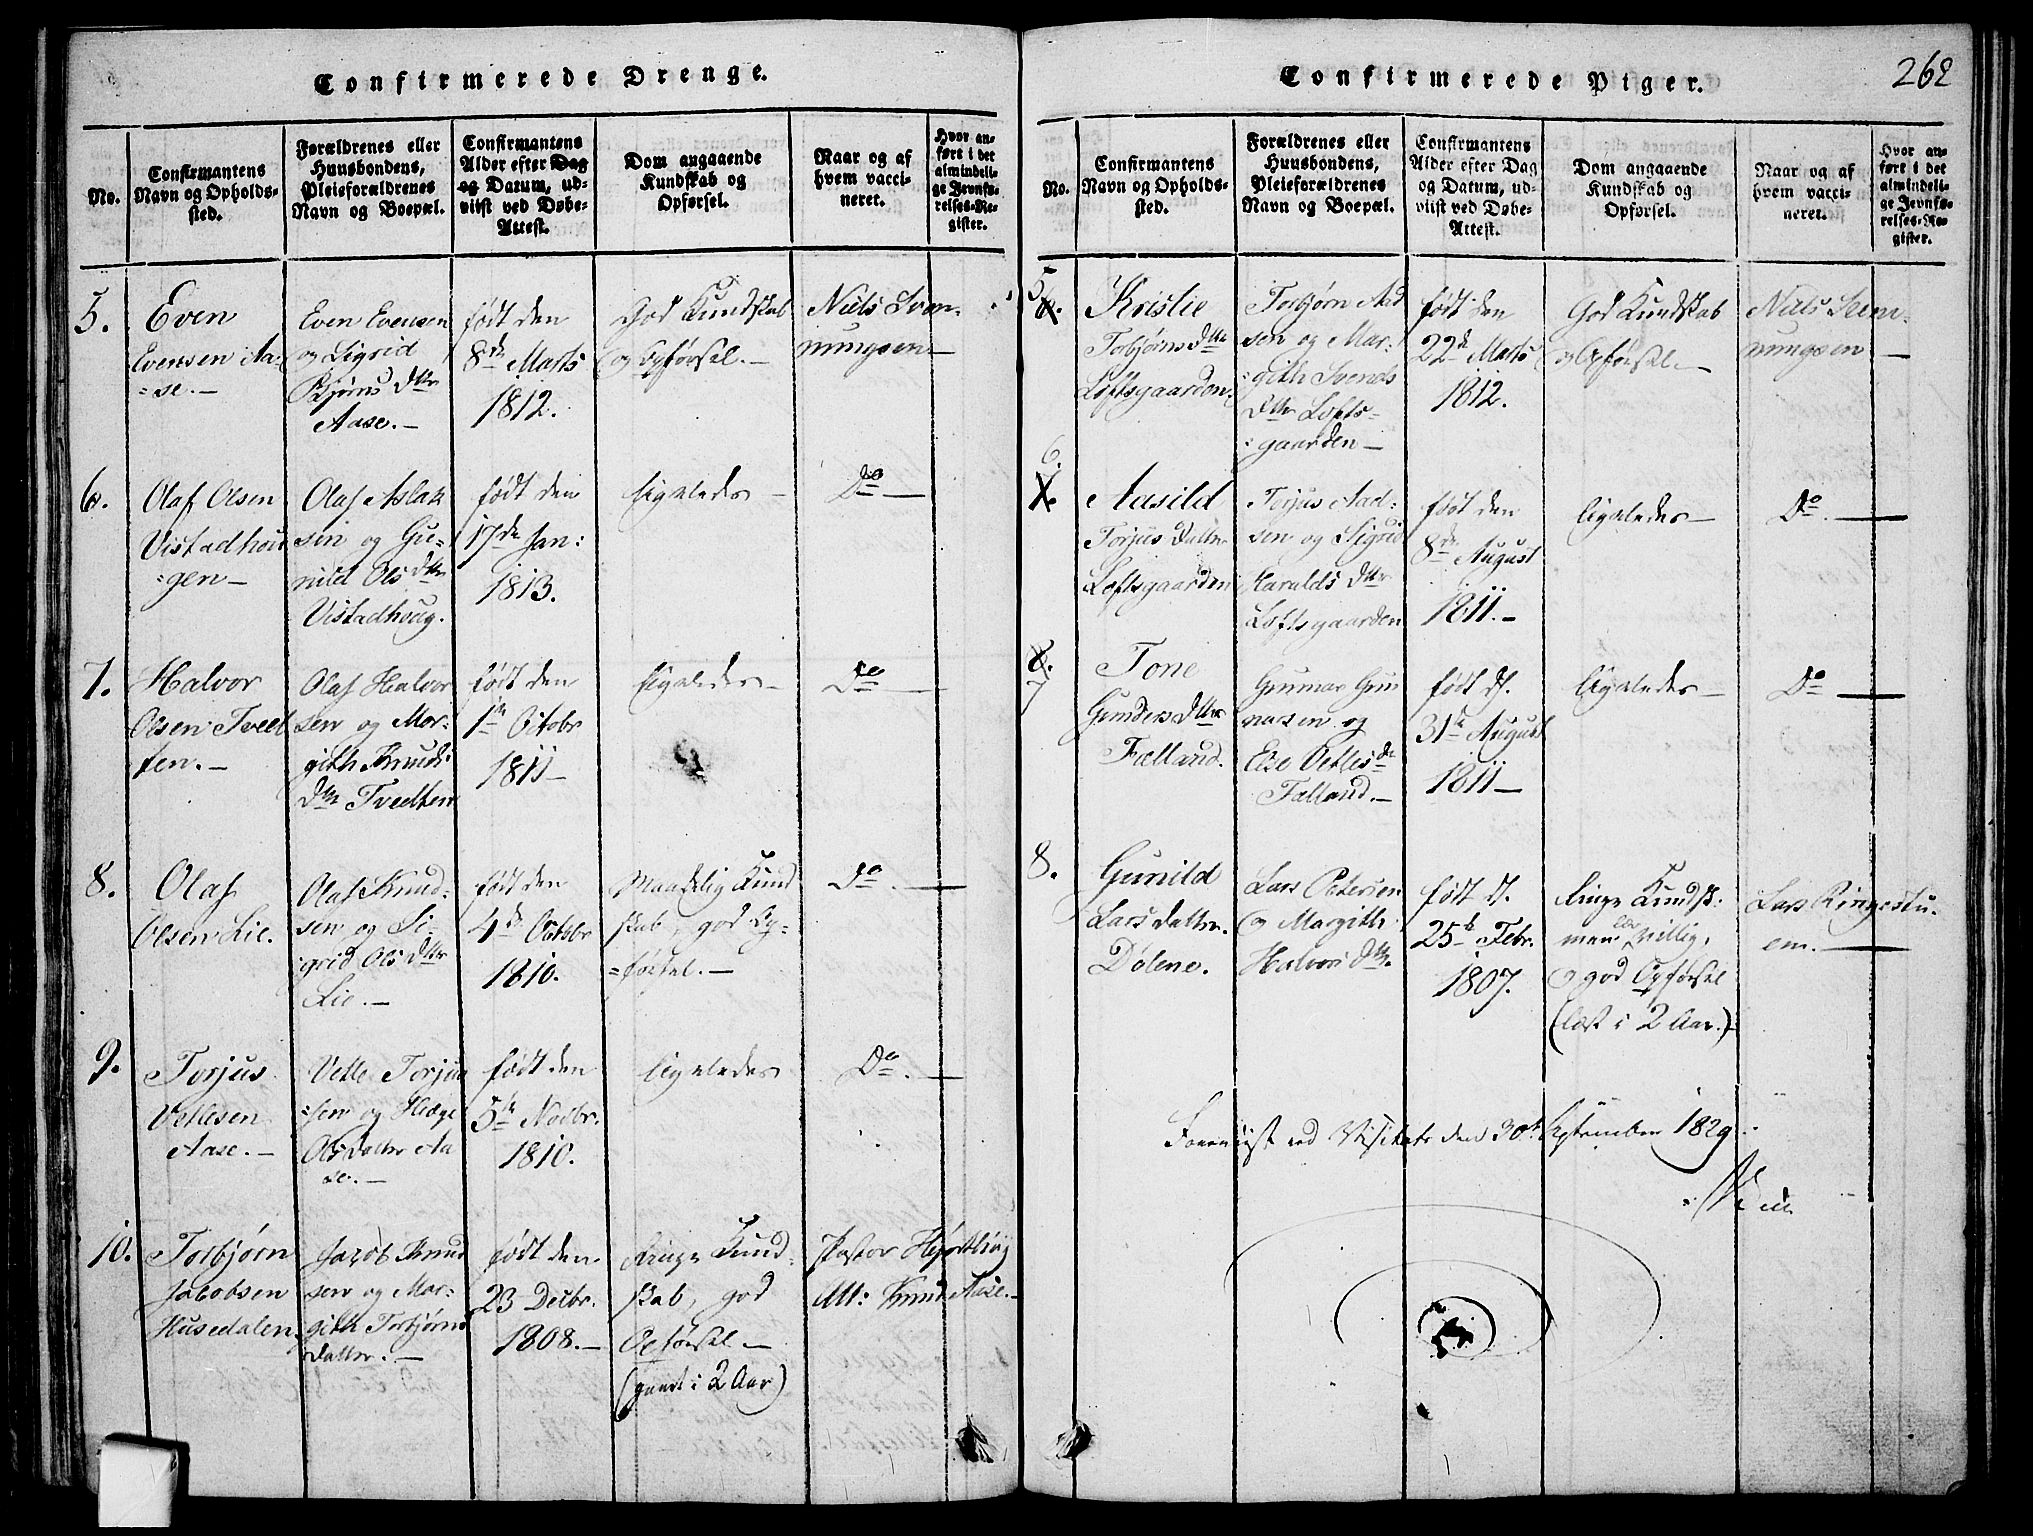 Confirmerede Drenge.
No.
Confirmantens
Navn og Opholds-
sted.
Forældrenes eller
Huusbondens,
Pleieforældrenes
Navn og Boepæl.
Confirmantens
Alder efter Dag
og Datum, ud-
viist ved Døbe-
Attest.
Dom angaaende
Kundskab og
Opførsel.
Naar og af
hvem vacci-
neret.
Hvor an-
ført i det
almindeli-
ge Jevnfø-
relses-Re-
gister.
5.
Even
Evensen Aa-
=se.-
Even Evensen
og Sigrid
Bjørns Dttr
Aase.-
født den
8de Marts
1812.
God Kundskab
og Opførsel.-
Niels Sven-
nungsen-
6.
Olaf Olsen
Vistadhou
=gen-
Olaf Aslak
sen og Gu-
nild Ols Dttr
Vistadhoug.
født den
17de Jan:
1813.
ligeledes-
Do-
7.
Halvor
Olsen Tveit
ten.-
Olaf Halvor
sen og Mar-
gith Knuds
Dttr Tveitten
født den
1te Octobr
1811-
ligeledes-
Do-
8.
Olaf
Olsen Lie.
Olaf Knud-
sen og Si-
grid Ols Dttr
Lie.-
født den
4de Octobr
1810.
Maadelig Kund
skab, god Op-
=førsel.-
Do.-
9.
Torjus
Vetlesen
Aase.-
Vetle Torju
=sen og Hæge
Ols Datter Aa
se.-
født den
5te Novbr.
1810.
ligeledes
Do.-
10.
Torbjørn
Jacobsen
Husedalen
Jacob Knud
sen og Mar-
gith Torbjørns
Datter.-
født den
23 Decbr.
1808.-
Ringe Kund-
skab, god
Opførsel-
i 2 Aar)
Pastor
Att: Knud Aase.-
Confirmerede Piger.
262
No.
Confirmantens
Navn og Opholds-
sted.
Forældrenes eller
Huusbondens,
Pleieforældrenes
Navn og Boepæl.
Confirmantens
Alder efter Dag
og Datum, ud-
viist ved Døbe-
Attest.
Dom angaaende
Kundskab og
Opførsel.
Naar og af
hvem vacci-
neret.
Hvor an-
ført i det
almindeli-
ge Jevnfø-
relses-Re-
gister.
5.
Kristie
Torbjørns Dttr
Loftsgaarden.
Torbjørn Aad
sen og Mar-
=gith Svends
Dttr Lofts-
=gaarden-
født den
22de Marts
1812.
God Kundskab
og Opførsel.-
Niels Sven-
nungsen-
6.
Aasild
Torjus Datter
Loftsgaarden
Torjus Aad-
sen og Sigrid
Haralds Dttr
Loftsgaarden
født den
8de August
1811.-
ligeledes-
Do.-
7
Tone
Gunders Dttr
Fælland.
Gunnar Gun
narsen og
Else Vetles Dr
Fælland.-
født d.
31te August
1811-
ligeledes-
Do-
8.
Gunild
Lars Datter.
Dølene.
Lars Petersen
og Margith
Halvors Dttr.
født d.
25de Febr.
1807.
Ringe Kundsk:
men villig,
og god Opførsel
(læst i 2 Aar.)-
Lars Ringestu-
en.-
Foreviist ved Visitats den 30te September 1829.